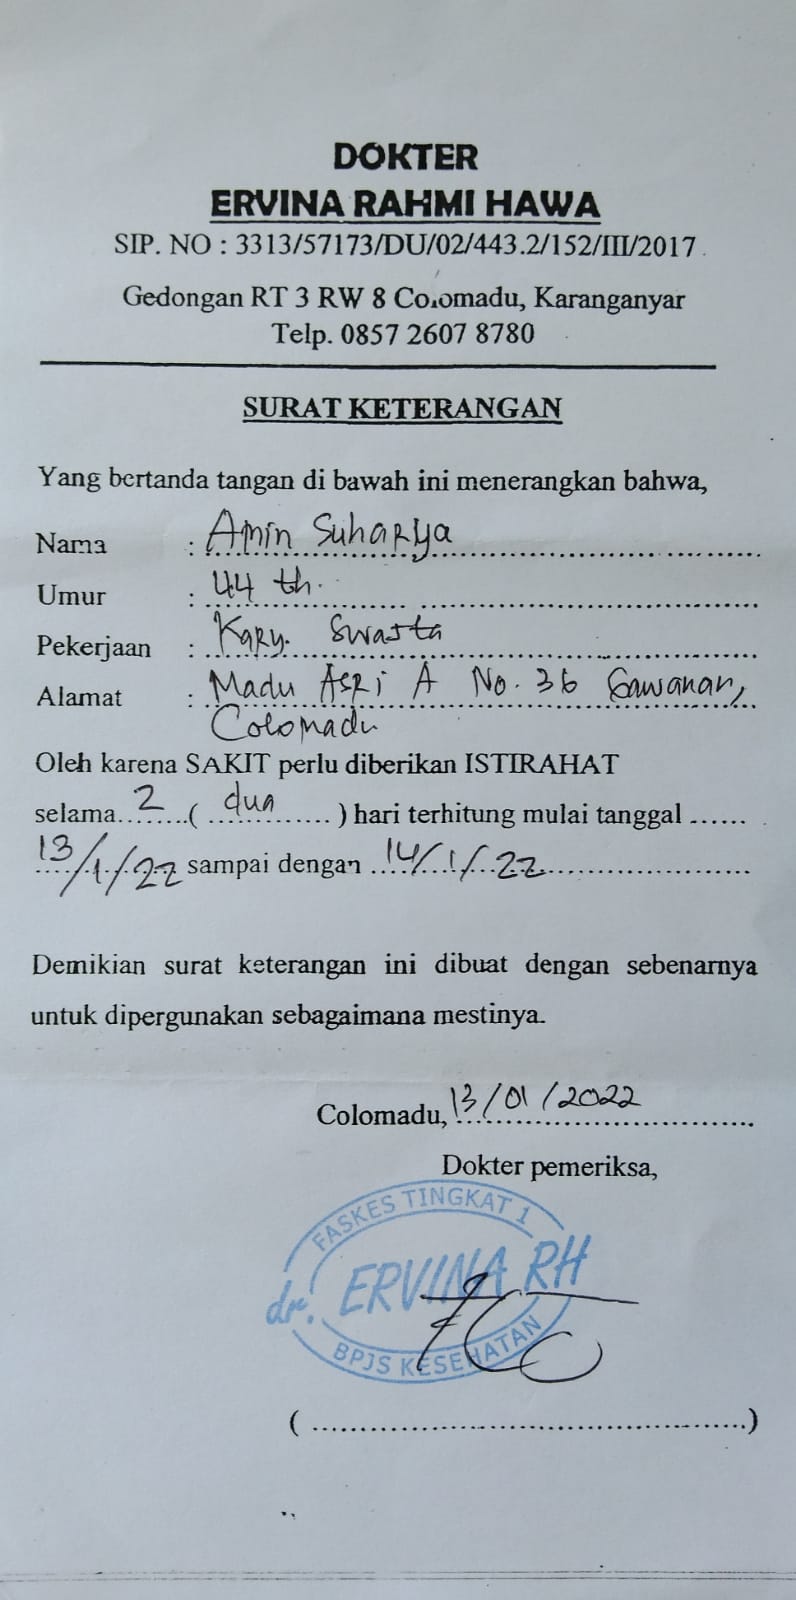 DOKTER
ERVINA RAHMI HAWA
SIP. NO : 3313/57173/DU/02/443.2/152/III/2017
Gedongan RT 3 RW 8 Colomadu, Karanganyar
Telp. 0857 2607 8780
SURAT KETERANGAN
Yang bertanda tangan di bawah ini menerangkan bahwa,
Nama : Amin Suharya
Umur : 44 th.
Pekerjaan : Kary. Swasta
Alamat : Madu Asri A No. 36 Gawanan,
Colomadu
Oleh karena SAKIT perlu diberikan ISTIRAHAT
selama 2 ( dua ) hari terhitung mulai tanggal
13/1/22 sampai dengan 14/1/22
Demikian surat keterangan ini dibuat dengan sebenarnya
untuk dipergunakan sebagaimana mestinya.
Colomadu, 13/01/2022
Dokter pemeriksa,
FASKES TINGKAT 1
dr. ERVINA RH
BPJS KESEHATAN
(..........)